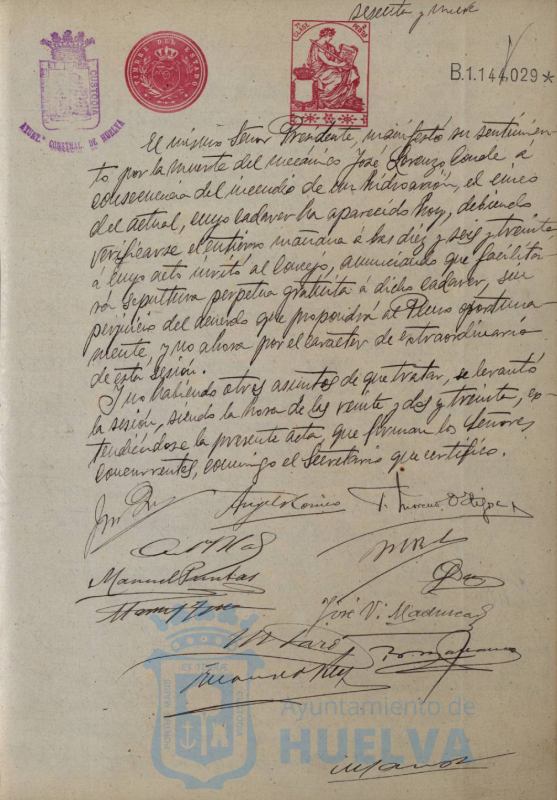 sesenta y nueve
TIMBRE DEL ESTADO
7ª CLASE
B.1.144,029*
CUSTODIA
AYUNT.º CONSTNAL. DE HUELVA
El mismo Señor Presidente, manifestó su sentimien-
to por la muerte del mecánico José Lorenzo Conde á
consecuencia del incendio de un hidroavión, el cinco
del actual, cuyo cadaver ha aparecido hoy, debiendo
verificarse el entierro mañana á las diez y seis y treinta
á cuyo acto invitó al Concejo, anunciando que facilita-
rá sepultura perpetua gratuita á dicho cadaver, sin
perjuicio del acuerdo que propondrá al Pleno oportuna
mente, y no ahora por el caracter de extraordinario
de esta sesión.
Y no habiendo otros asuntos de que tratar, se levantó
la sesión, siendo la hora de las veinte y dos y treinta, ex-
tendiéndose la presente acta, que firman los Señores
concurrentes, conmigo el Secretario que certifico.
Manuel Puntas
José V. Madruga
Ayuntamiento de
HUELVA